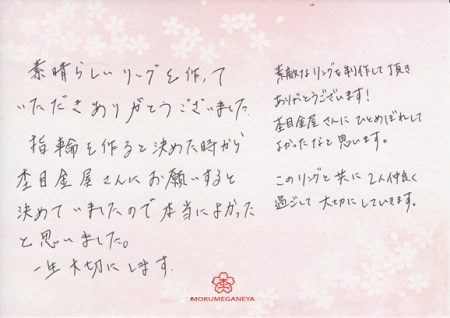 素晴らしいリングを作って
いただきありがとうございました
指輪を作ると決めた時から
杢目金屋さんにお願いすると
決めていましたので本当によかった
と思いました。
一生大切にします
素敵なリングを制作して頂き
ありがとうございます!
杢目金屋さんにひとめぼれして
よかったなと思います。
このリングと共に2人仲良く
過ごして大切にしていきます。
MOKUMEGANEYA